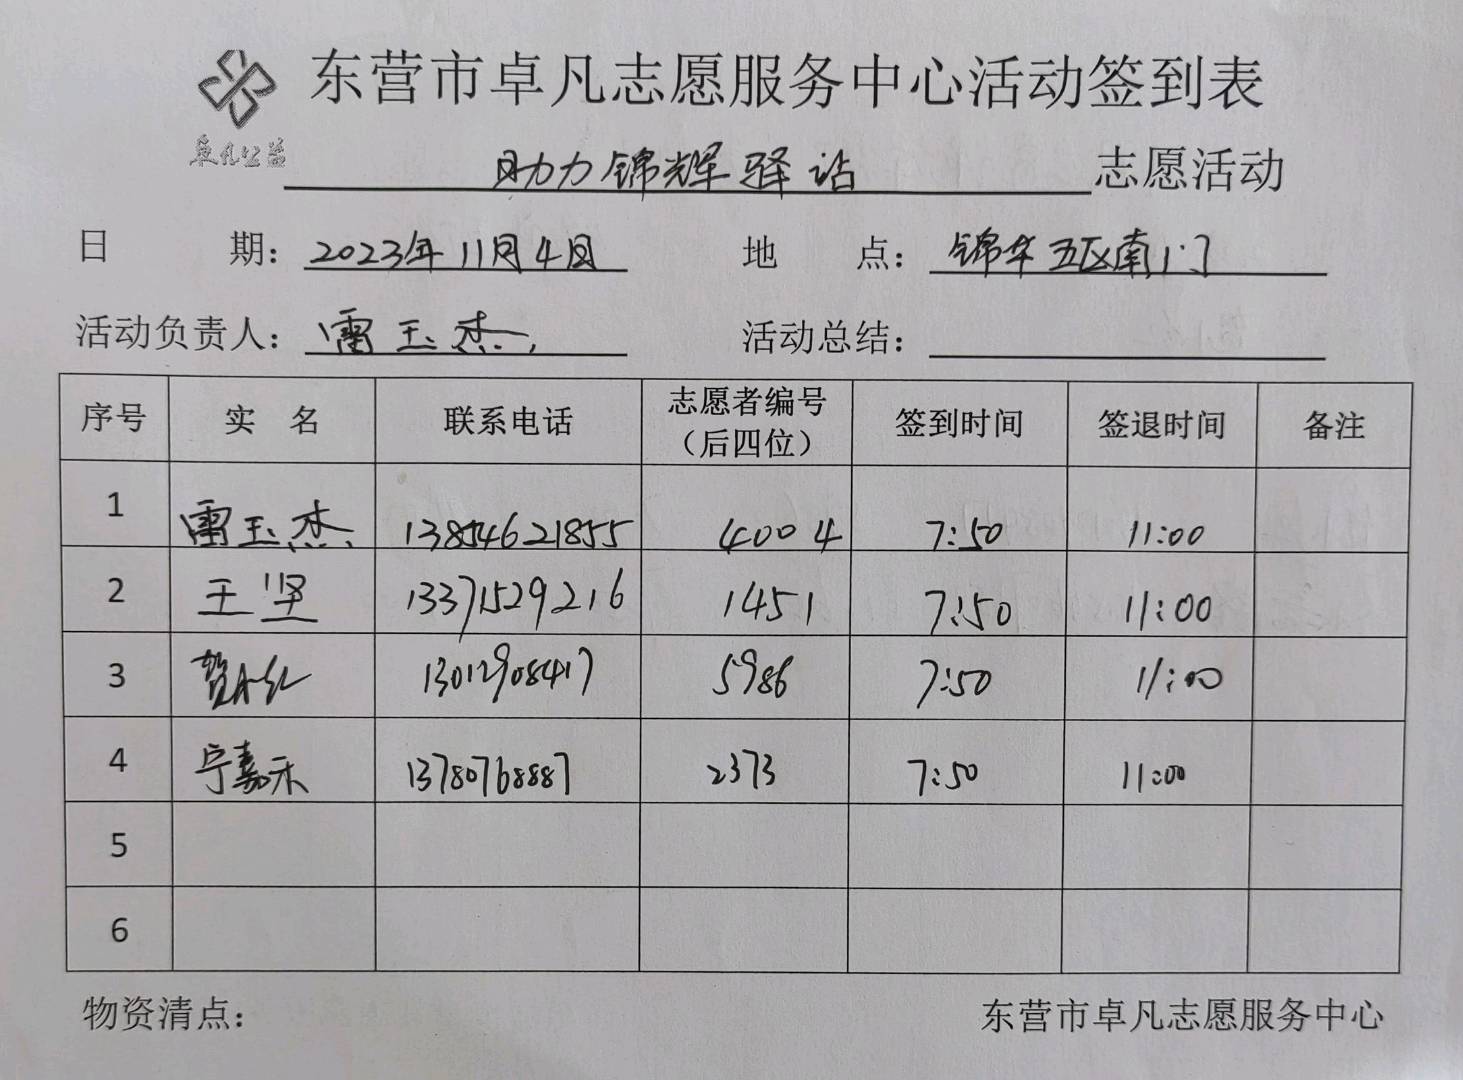 东营市卓凡志愿服务中心活动签到表
卓凡公益
助力锦辉驿站 志愿活动
日 期：2023年11月4日 地 点：锦华五区南门
活动负责人：雷玉杰 活动总结：
序号 实 名 联系电话 志愿者编号（后四位） 签到时间 签退时间 备注
1 雷玉杰 13854621855 4004 7:50 11:00
2 王坚 13371529216 1451 7:50 11:00
3 13012908417 5986 7:50 11:00
4 宁嘉禾 13780768887 2373 7:50 11:00
5
6
物资清点： 东营市卓凡志愿服务中心